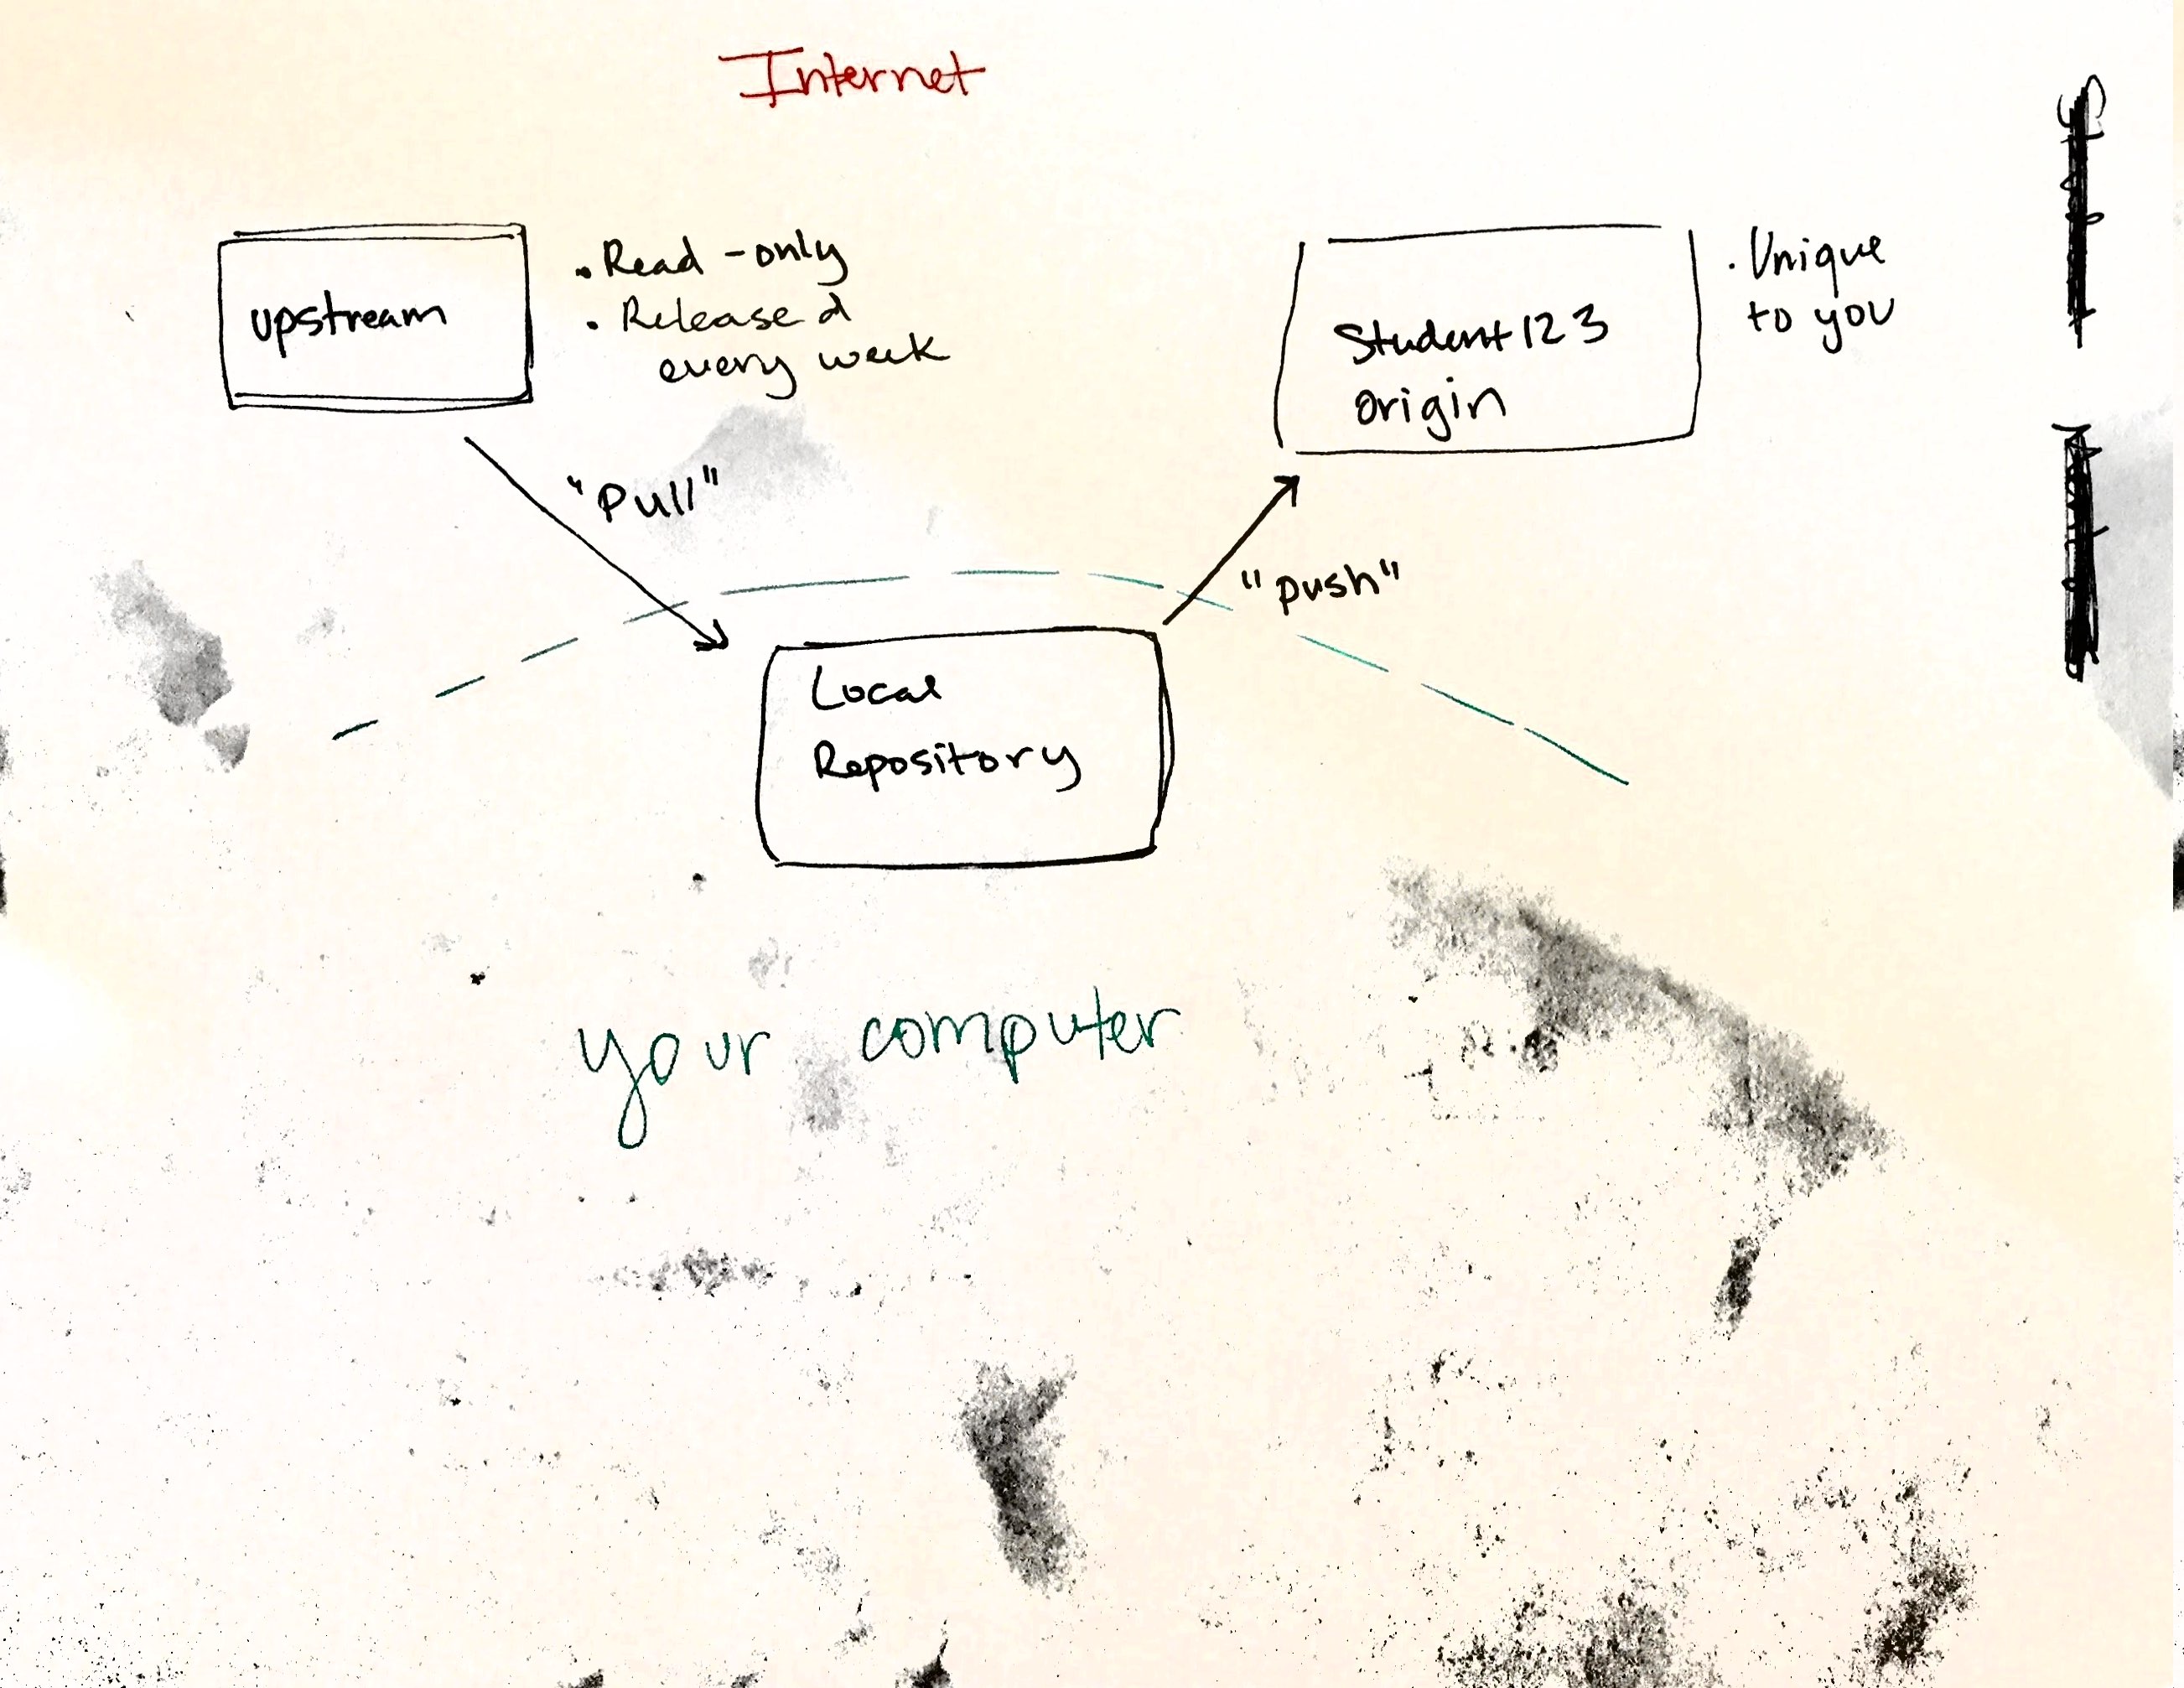 Internet
upstream
• Read-only
• Released
every week
Student123
origin
• Unique
to you
"Pull"
"push"
Local
Repository
your computer